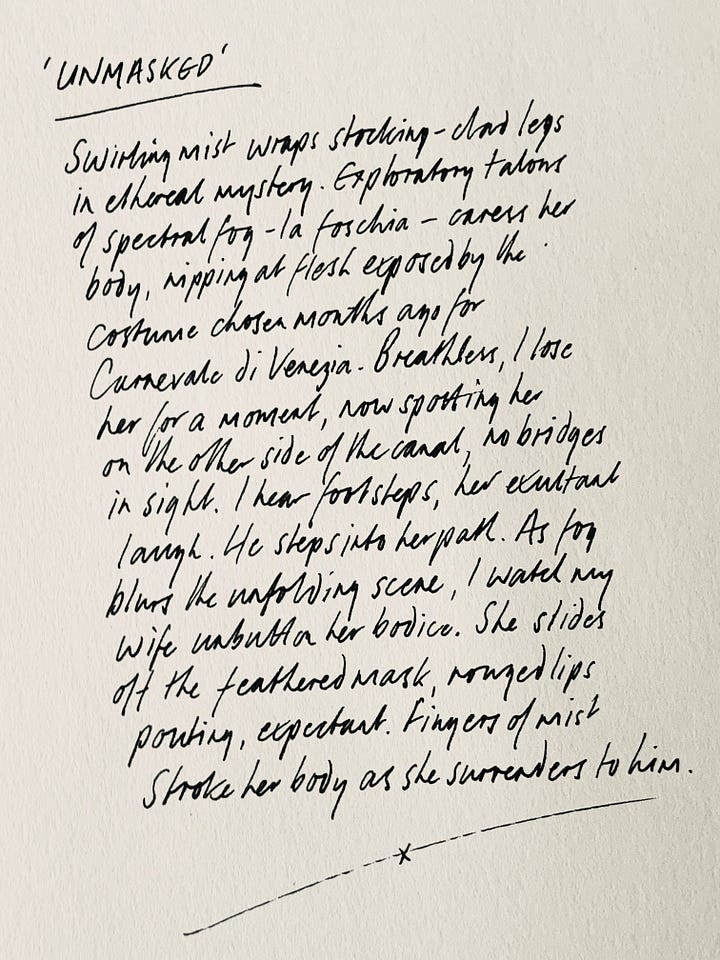 'UNMASKED'
Swirling mist wraps stocking-clad legs
in ethereal mystery. Exploratory talons
of spectral fog - la foschia - caress her
body, nipping at flesh exposed by the
costume chosen months ago for
Carnevale di Venezia. Breathless, I lose
her for a moment, now spotting her
on the other side of the canal, no bridges
in sight. I hear footsteps, her exultant
laugh. He steps into her path. As fog
blurs the unfolding scene, I watch my
wife unbutton her bodice. She slides
off the feathered mask, rouged lips
pouting, expectant. Fingers of mist
stroke her body as she surrenders to him.
x